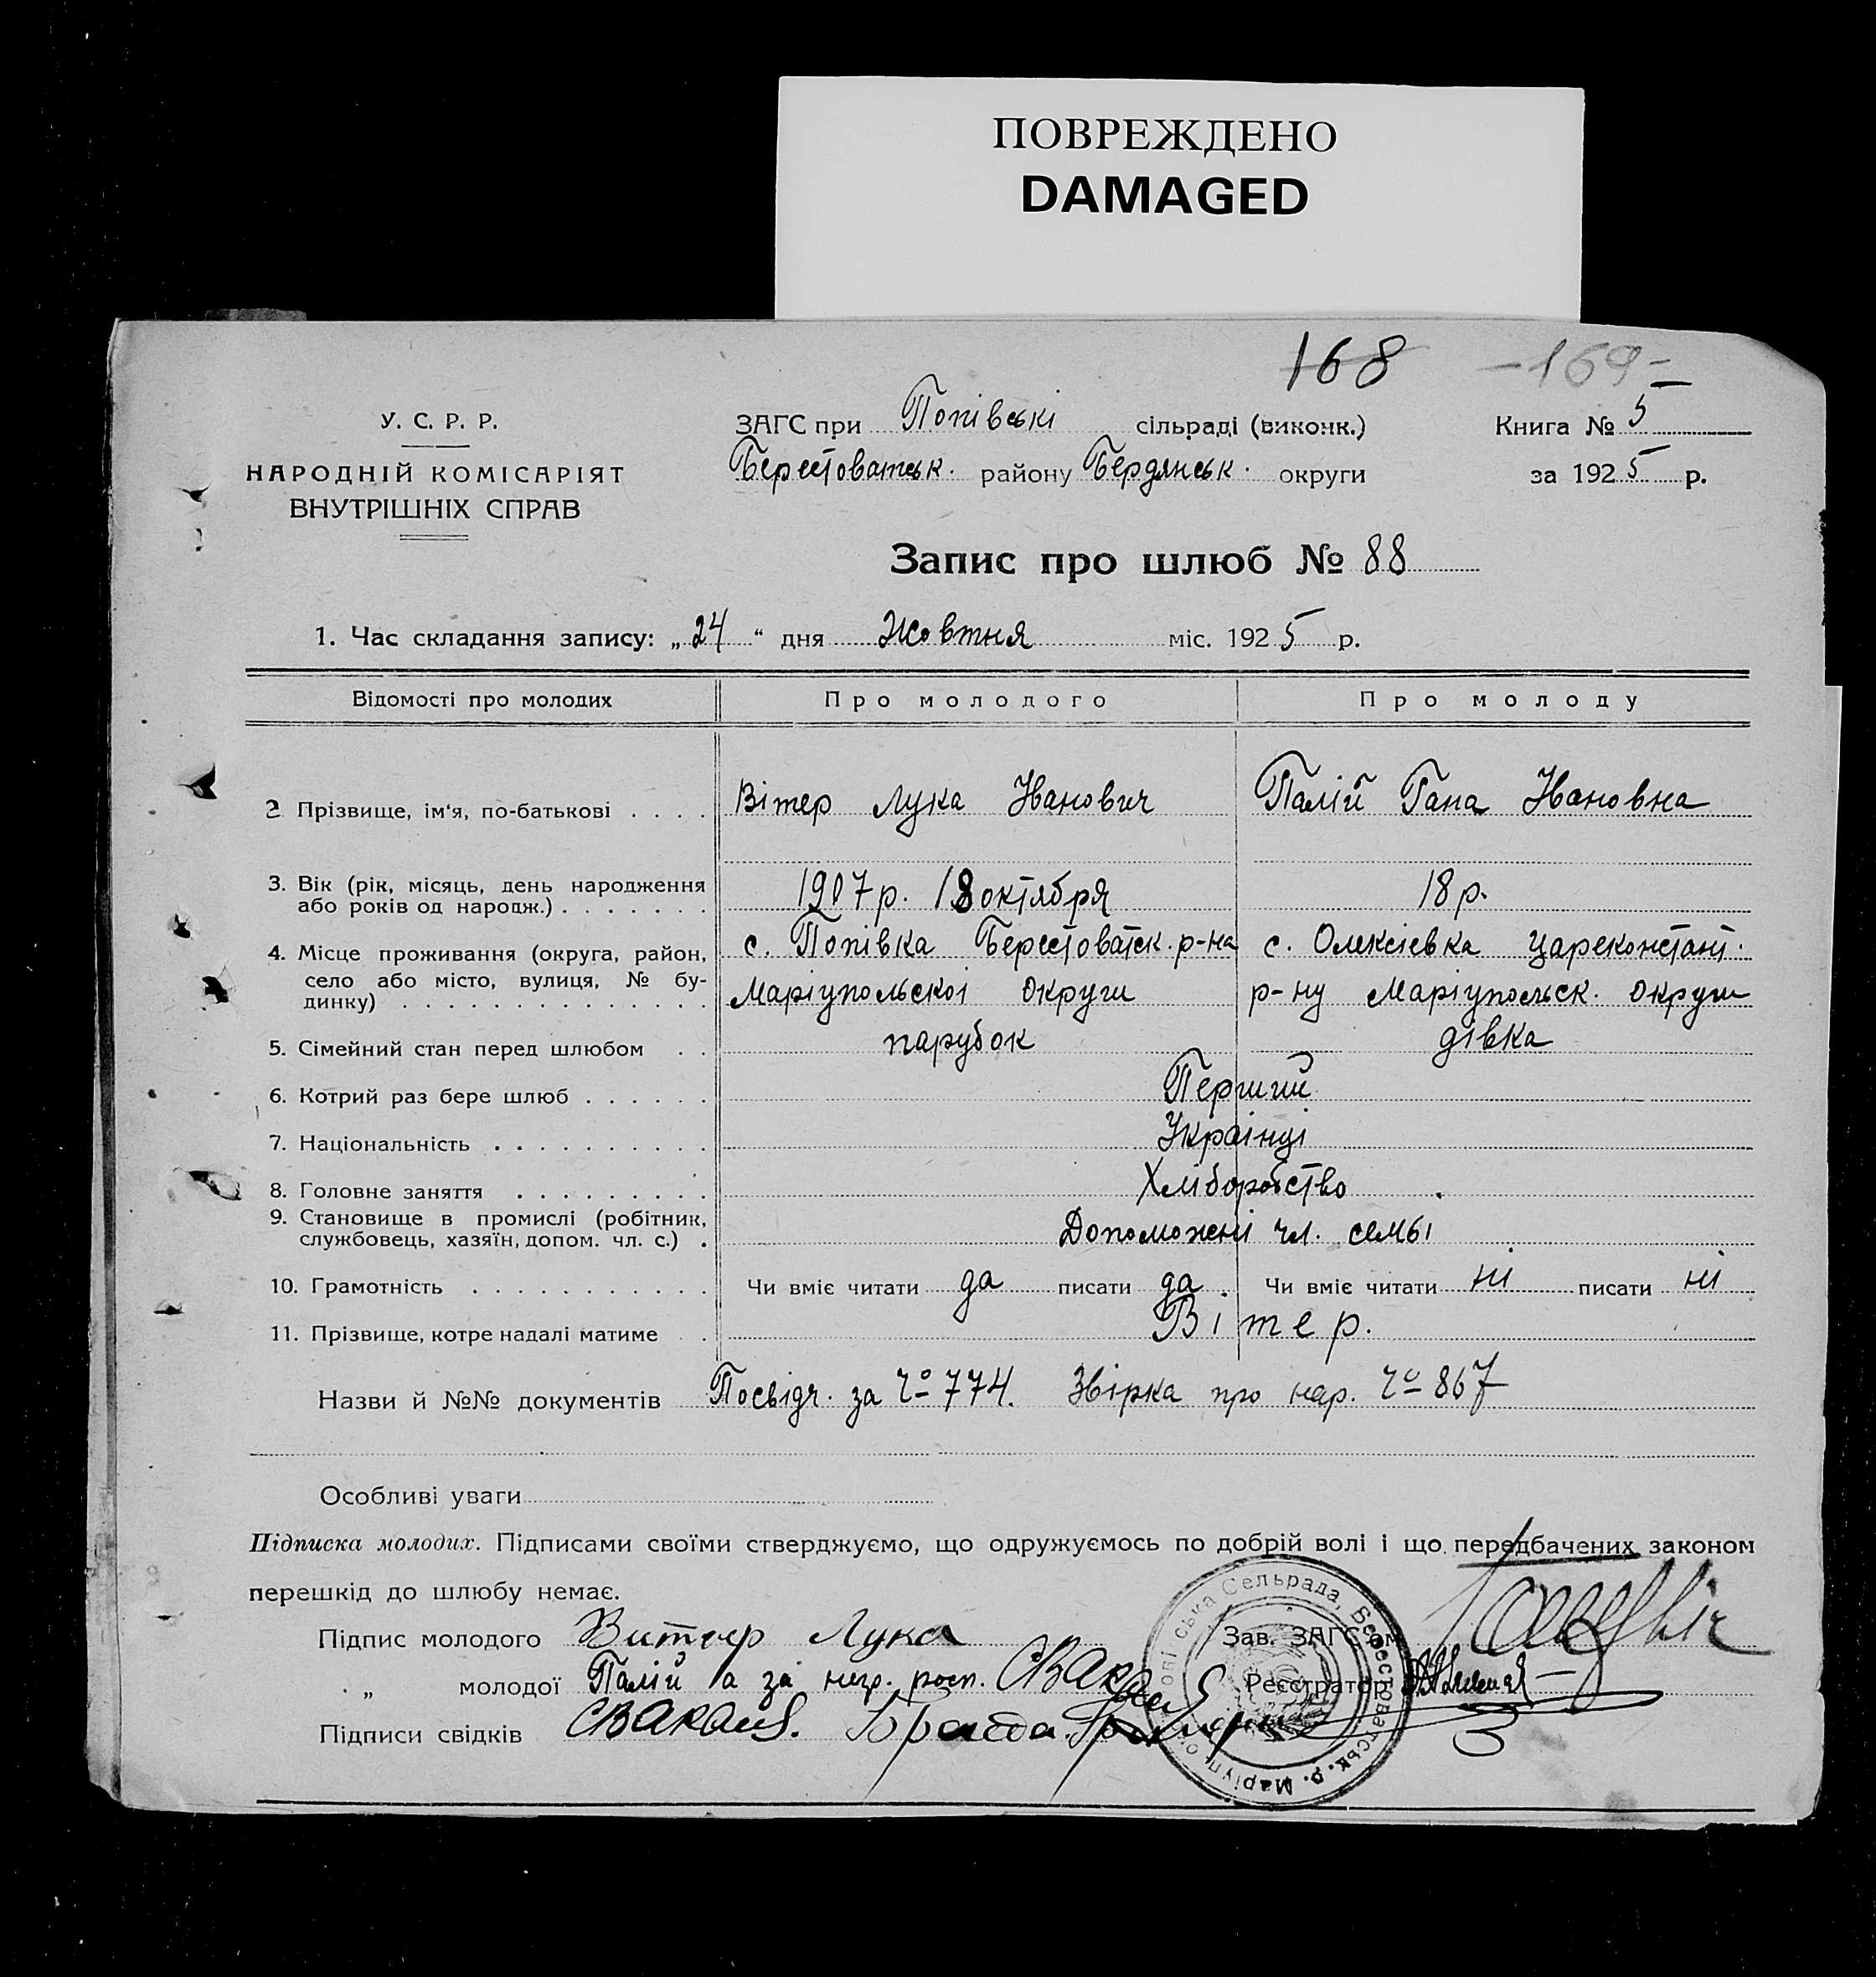 ПОВРЕЖДЕНО
DAMAGED
168 -169-
У. С. Р. Р.
НАРОДНІЙ КОМІСАРІЯТ
ВНУТРІШНІХ СПРАВ
ЗАГС при Попівські сільраді (виконк.)
Берестоватськ. району Бердянськ. округи
Книга № 5
за 1925 р.
Запис про шлюб № 88
1. Час складання запису: „24“ дня Жовтня міс. 1925 р.
Відомості про молодих Про молодого Про молоду
2 Прізвище, ім'я, по-батькові . . . . Вітер Лука Іванович Палій Гана Івановна
3. Вік (рік, місяць, день народження
або років од народж.) . . . . . . . 1907 р. 18 октября 18 р.
4. Місце проживання (округа, район, с. Попівка Берестоватск. р-на с. Олексіевка Цареконстант.
село або місто, вулиця, № бу-
динку) . . . . . . . . . . . . . . Маріупольскоі Округи р-ну Маріупольск. Округи
5. Сімейний стан перед шлюбом . . парубок дівка
6. Котрий раз бере шлюб . . . . . . Перший
7. Національність . . . . . . . . . . Украінці
8. Головне заняття . . . . . . . . . Хліборобство
9. Становище в промислі (робітник,
службовець, хазяїн, допом. чл. с.) . Допоможні чл. семьі
10. Грамотність . . . . . . . . . . . Чи вміє читати да писати да. Чи вміє читати ні писати ні
11. Прізвище, котре надалі матиме . . Вітер.
Назви й №№ документів Посвідч. за Чо 774. Звірка про нар. Чо 867
Особливі уваги
Підписка молодих. Підписами своїми стверджуємо, що одружуємось по добрій волі і що передбачених законом
перешкід до шлюбу немає.
Підпис молодого Витер Лука Зав. ЗАГС'ом
„ молодої Палій а за негр. росп. Реєстратор
Підписи свідків
Сельрада, Берестоватськ. р. Маріуп